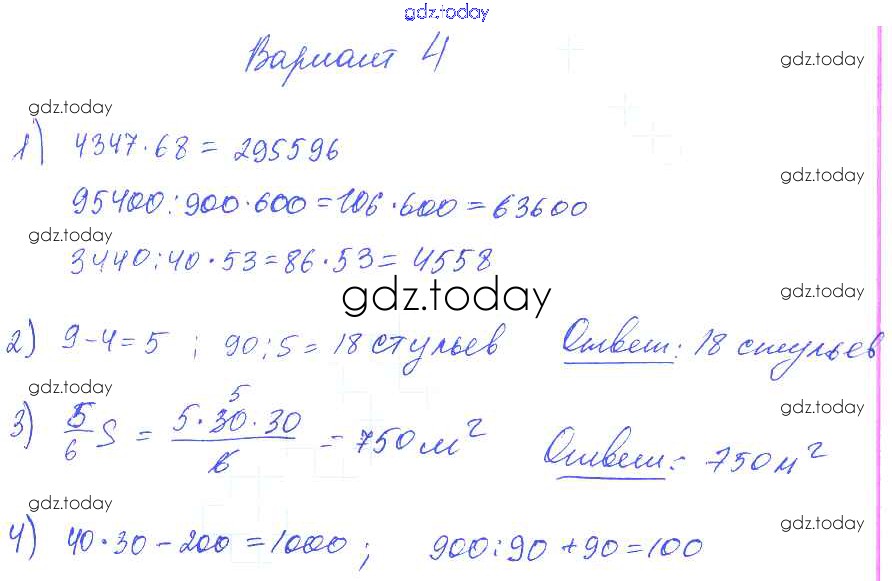 gdz.today
Вариант 4
gdz.today
gdz.today
1) 4347·68 = 295596
gdz.today
95400:900·600=106·600=63600
gdz.today
3440:40·53=86·53=4558
gdz.today
gdz.today
2) 9-4=5 ; 90:5=18 стульев Ответ: 18 стульев
gdz.today
gdz.today
5
3) 5/6 S = 5·30·30/6 = 750 м² Ответ: 750 м²
gdz.today
gdz.today
4) 40·30-200=1000; 900:90+90=100